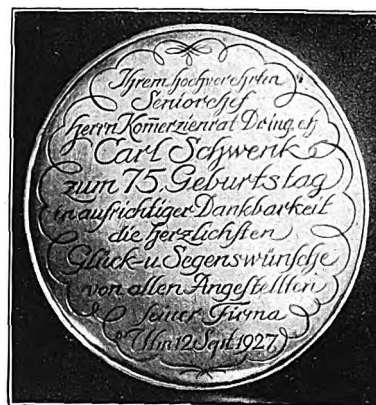 Ihrem hochverehrten
Seniorchef
Herrn Kom̄erzienrat Dr ing. eh
Carl Schwenk
zum 75. Geburtstag
in aufrichtiger Dankbarkeit
die herzlichsten
Glück- u. Segenswünsche
von allen Angestellten
seiner Firma
Ulm 12 Sept. 1927